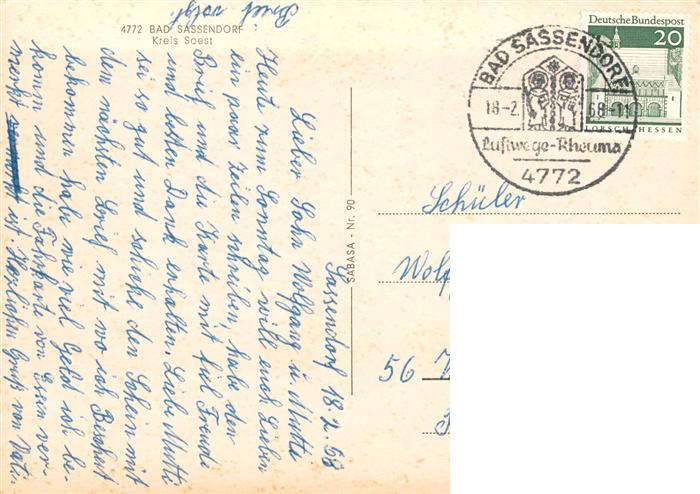 4772 BAD SASSENDORF
Kreis Soest
Brief folgt.
Sassendorf 18.2.68
Lieber Sohn Wolfgang u. Mutti
Heute zum Sonntag will euch Lieben
ein paar Zeilen schreiben, habe den
Brief und die Karte mit fiel Freude
und besten Dank erhalten. Liebe Mutti
sei so gut und schicke den Schein mit
den nächsten Brief mit wo ich Bescheit
bekommen habe wie viel Geld ich be-
komm und die Fahrkarte von Essen ver-
merkt ist. Herzlichen Gruß von Vati.
SABASA - Nr. 90
BAD SASSENDORF
18-2. 68-11
Luftwege-Rheuma
4772
Deutsche Bundespost
20
LORSCH/HESSEN
Schüler
Wolf
56